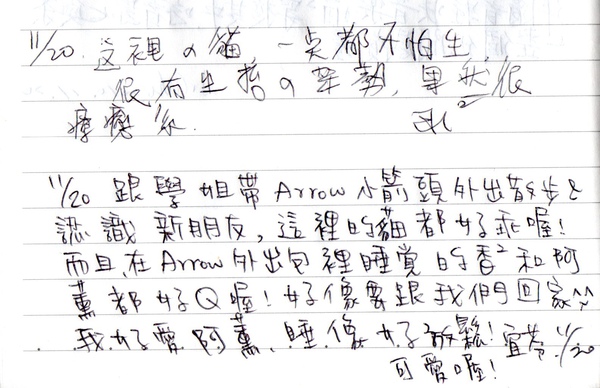 11/20. 这裡の貓 一点都不怕生
很有坐抬の架勢, 果然很
療癒系.
11/20 跟學姐帶Arrow小箭頭外出散步&
認識新朋友, 這裡的貓都好乖喔!
而且在Arrow外出包裡睡覺的香²和阿
薰都好Q喔! 好像要跟我們回家^^
我好愛阿薰, 睡像好放鬆! 11/20
可愛喔!